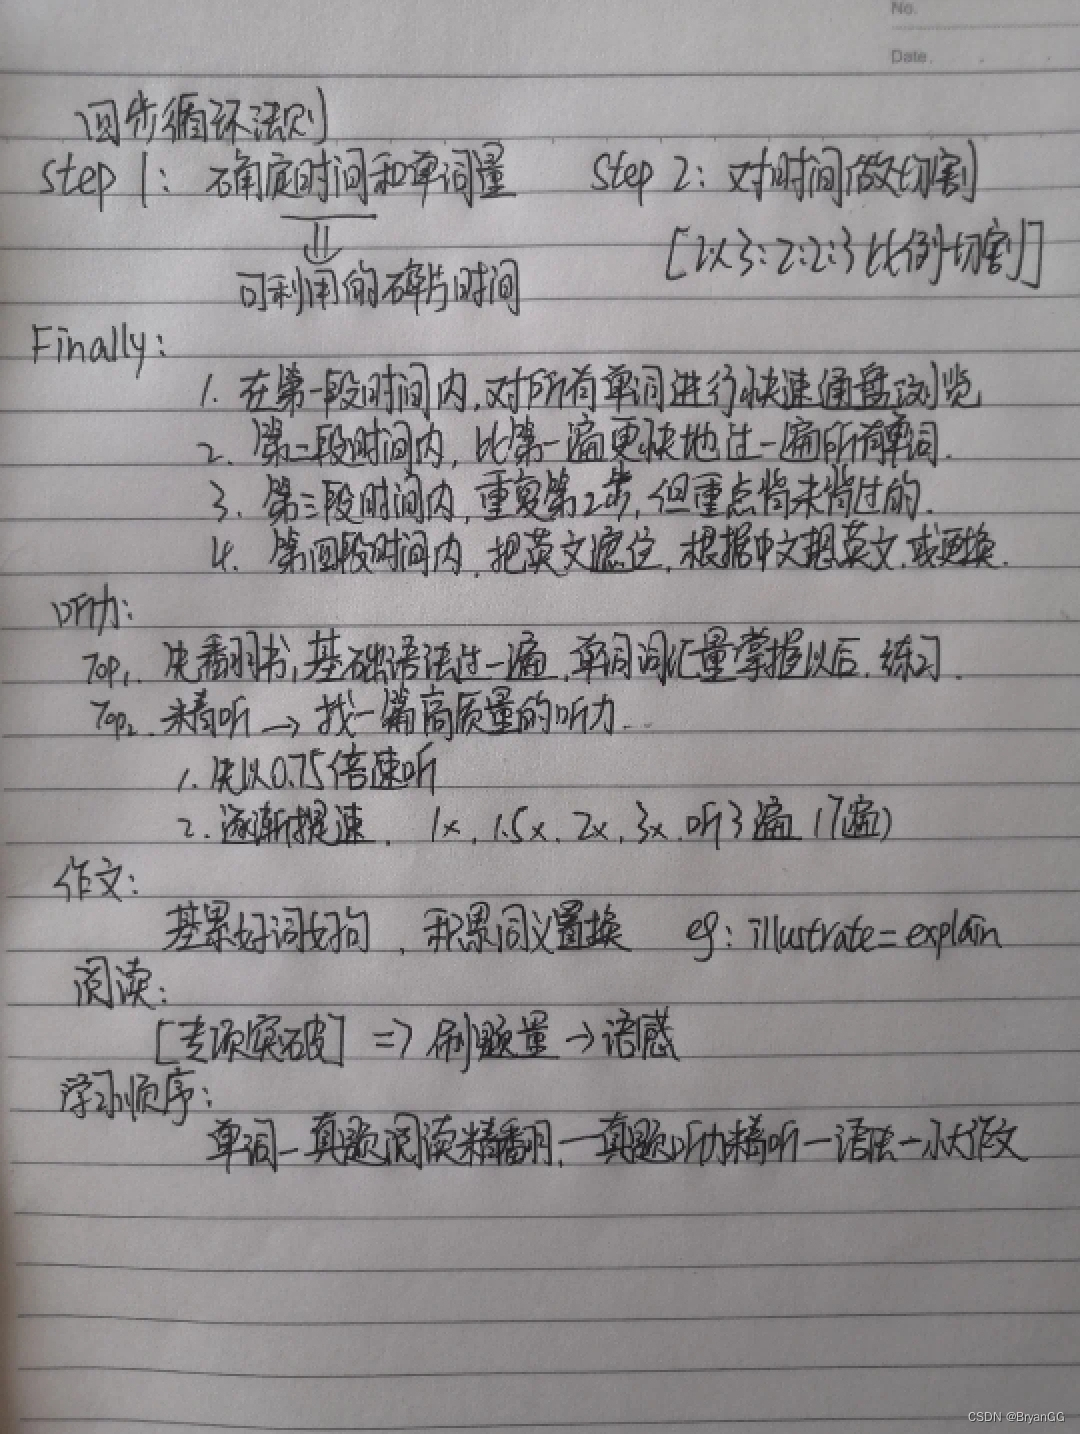 No.
Date.
四步循环法则
Step 1: 确定时间和单词量 Step 2: 对时间做切割
[以3:2:2:3比例切割]
可利用的碎片时间
Finally:
1. 在第一段时间内,对所有单词进行快速通盘浏览
2. 第二段时间内,比第一遍更快地过一遍所有单词.
3. 第三段时间内,重复第2步,但重点背未背过的.
4. 第四段时间内,把英文遮住,根据中文想英文.或更换.
听力:
Top1. 先翻书,基础语法过一遍,单词词汇量掌握以后.练习.
Top2. 精听→找一篇高质量的听力.
1. 先以0.75倍速听
2. 逐渐提速. 1x, 1.5x, 2x, 3x 听3遍(7遍)
作文:
基累好词好句,积累词义置换 eg: illustrate=explain
阅读:
[专项突破] => 刷题量→语感
学习顺序:
单词—真题阅读精翻.—真题听力精听—语法—小大作文
CSDN @BryanGG